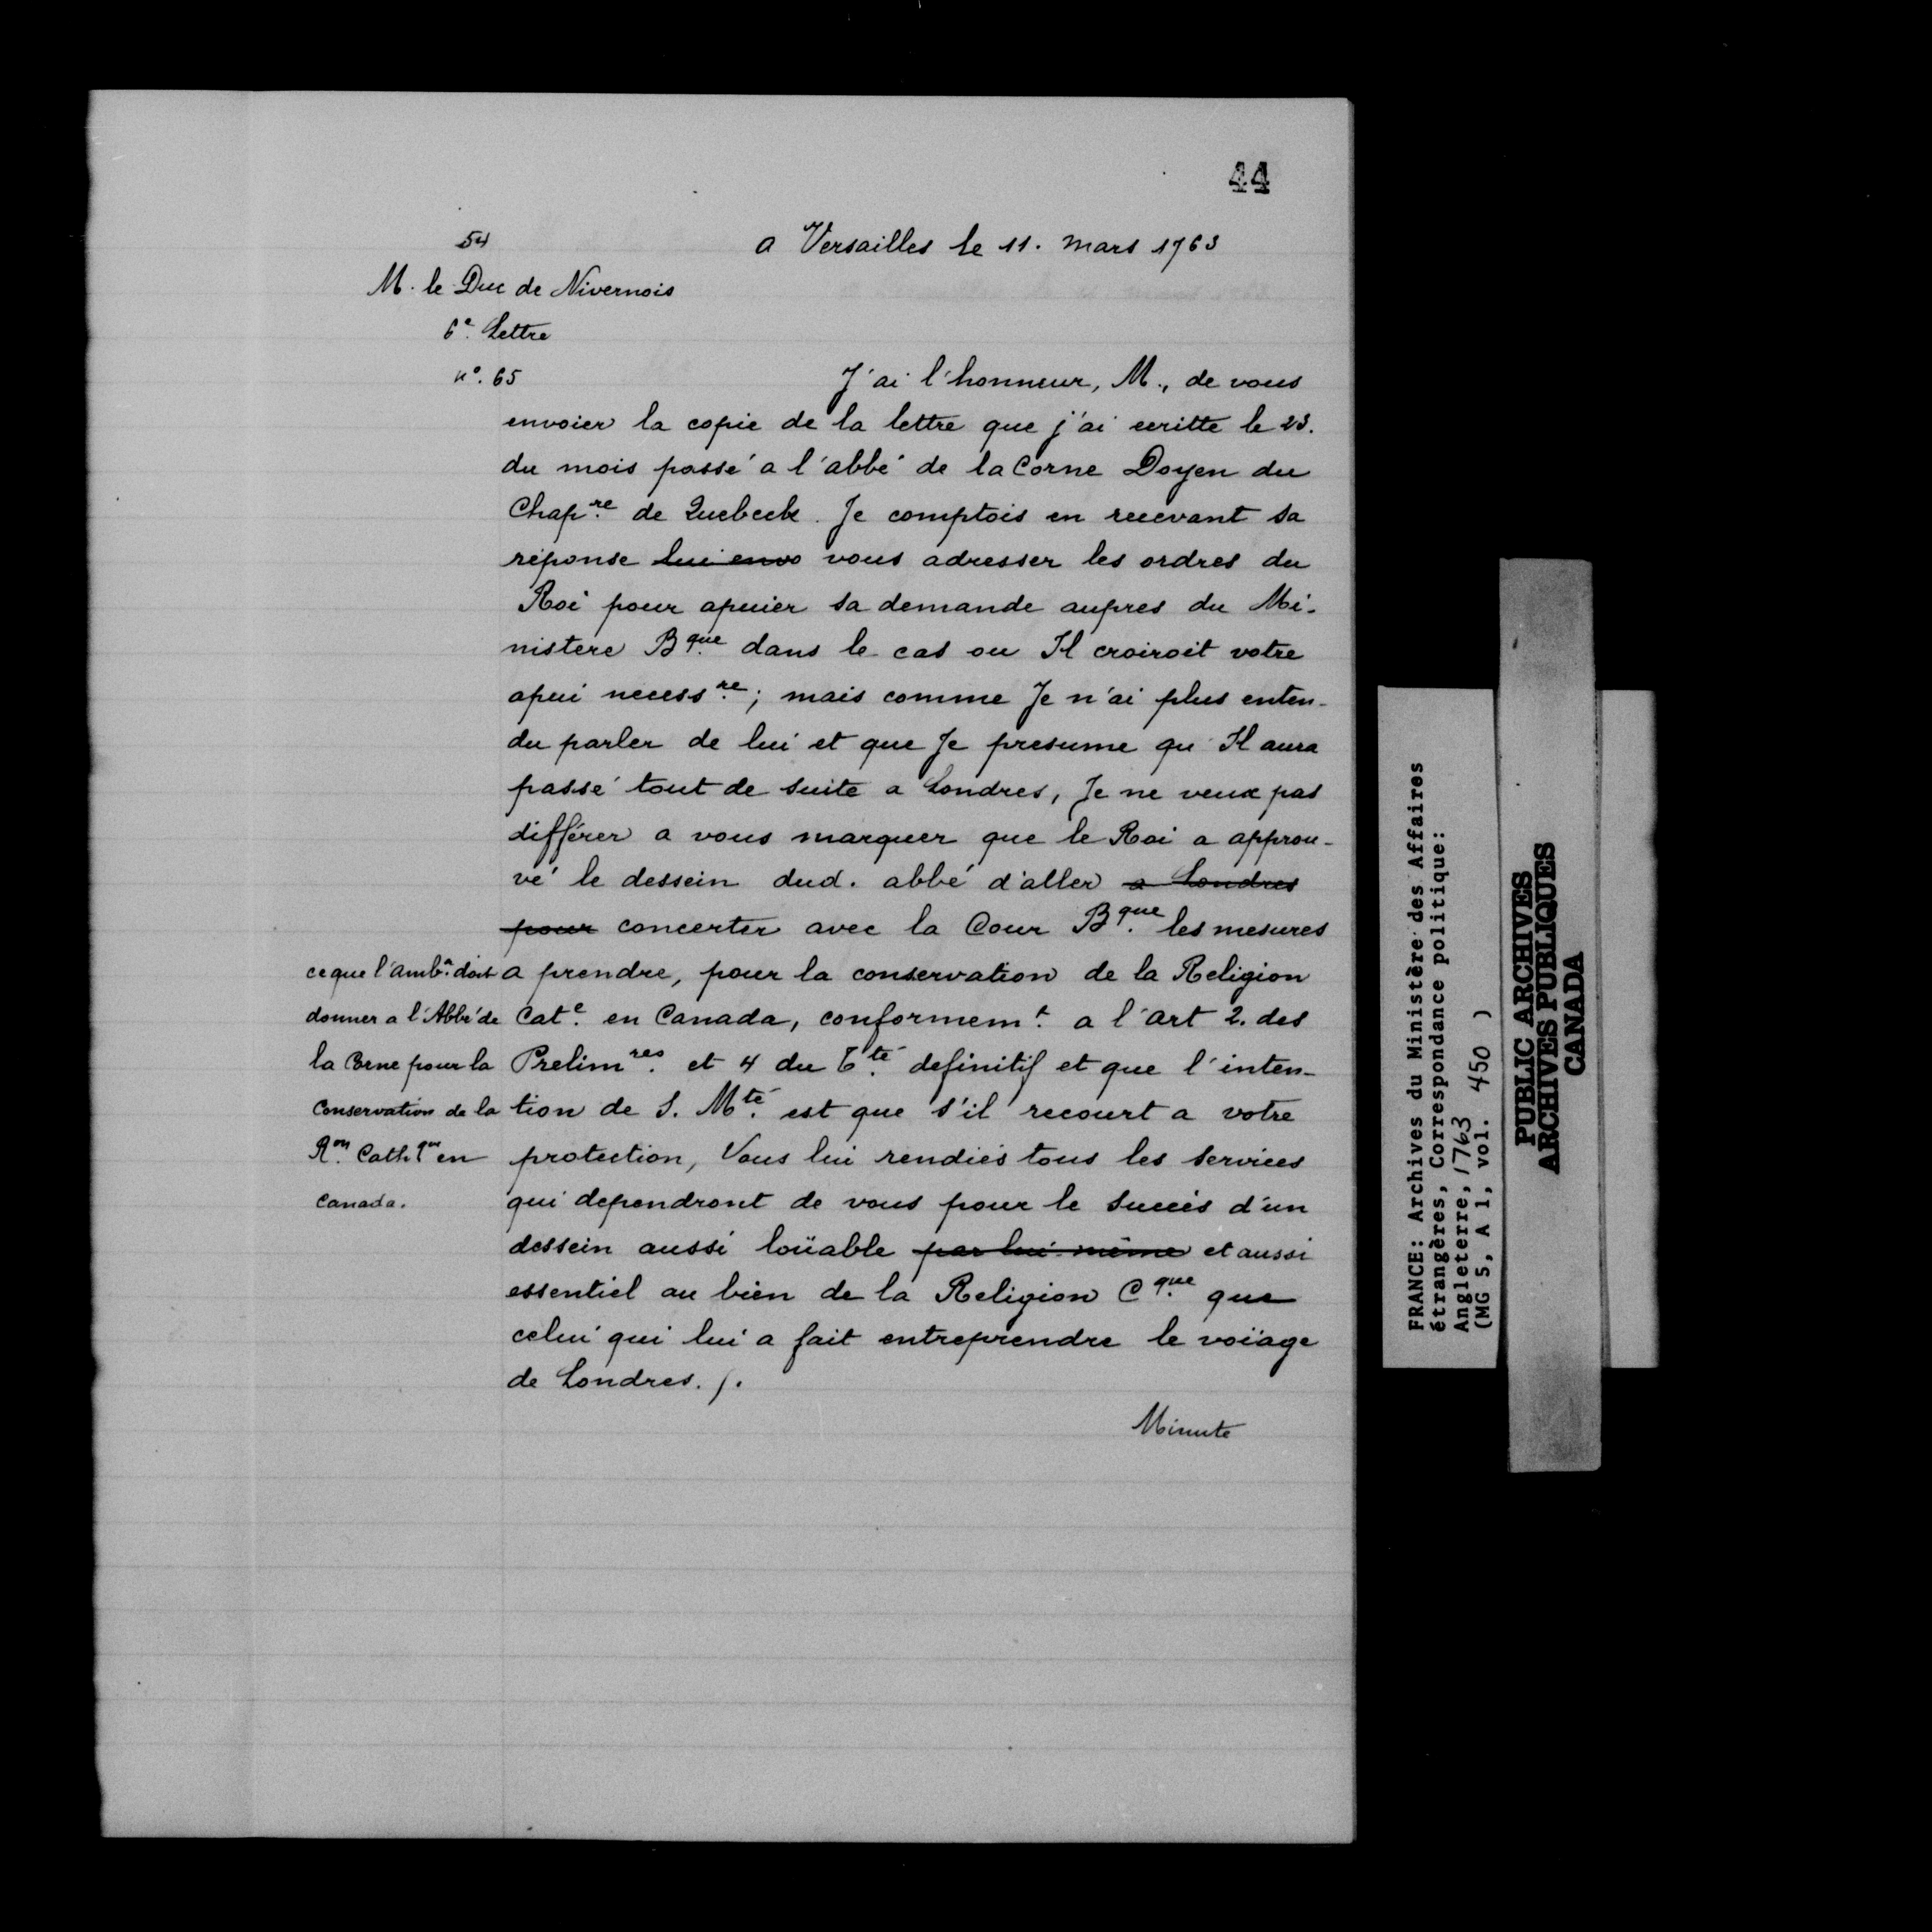 44
54
a Versailles le 11. mars 1763
M. le Duc de Nivernois
6e. Lettre
no. 65
J'ai l'honneur, M., de vous
envoier la copie de la lettre que j'ai ecritte le 23.
du mois passé a l'abbé de la Corne Doyen du
Chapre. de Quebeck. Je comptois en recevant sa
réponse lui envo vous adresser les ordres du
Roi pour apuier sa demande aupres du Mi-
nistere Bque. dans le cas ou Il croiroit votre
apui necessre.; mais comme Je n'ai plus enten-
du parler de lui et que Je presume qu'Il aura
passé tout de suite a Londres, Je ne veux pas
différer a vous marquer que le Roi a approu-
vé le dessein dud. abbé d'aller a Londres
pour concerter avec la Cour Bque. les mesures
a prendre, pour la conservation de la Religion
Cate. en Canada, conformemt. a l'art 2. des
Prelimres. et 4 du Tté. definitif et que l'inten-
tion de S. Mté. est que s'il recourt a votre
protection, Vous lui rendiés tous les services
qui dependront de vous pour le succès d'un
dessein aussi loüable par lui même et aussi
essentiel au bien de la Religion Cque. que
celui qui lui a fait entreprendre le voïage
de Londres. /.
Minute
ce que l'ambr. doit
donner a l'Abbé de
la Corne pour la
Conservation de la
Ron. Cath.que en
Canada.
FRANCE: Archives du Ministère des Affaires
étrangères, Correspondance politique:
Angleterre, 1763
(MG 5, A 1, vol. 450 )
PUBLIC ARCHIVES
ARCHIVES PUBLIQUES
CANADA